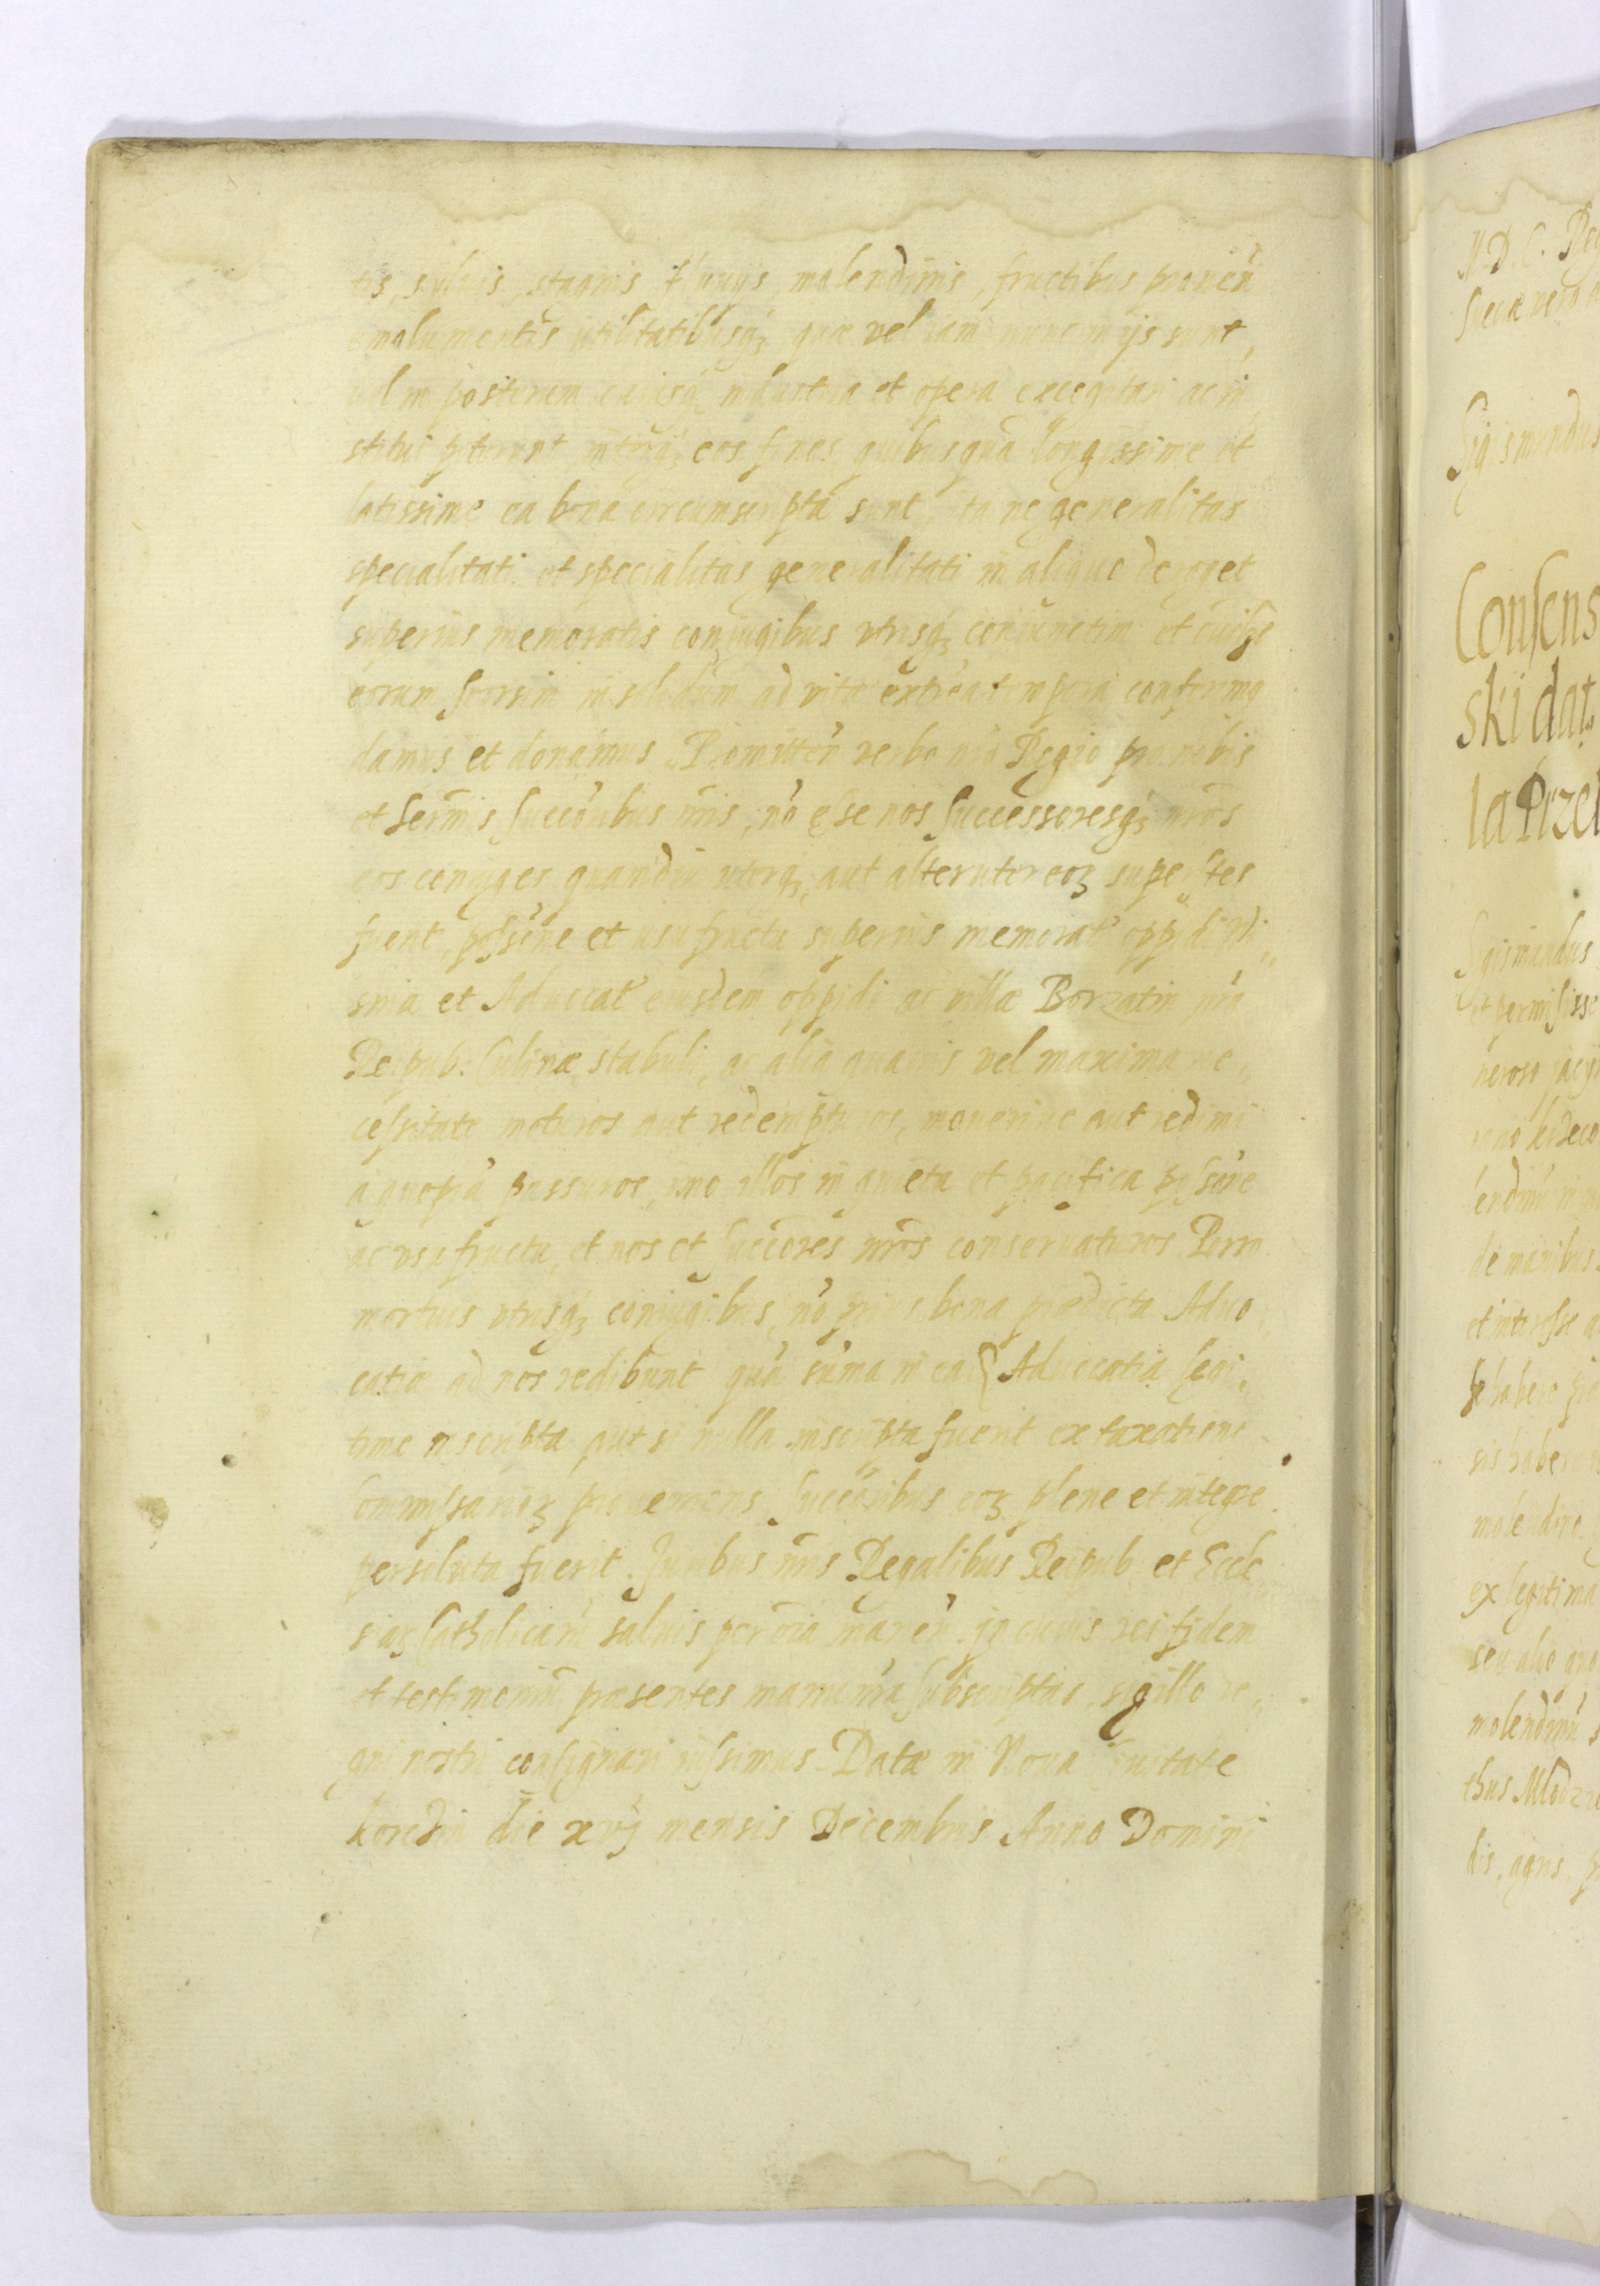 tis, sylvis, stagnis, fluuijs, molendinis, fructibus prouen̄
emolumentis utilitatibusq; quae vel iam nunc in ijs sunt,
vel in posterum cuiusq; industria et opera excogitari ac in
stitui poterunt eos fines quibus qua longissime et
latissime ea bona circumscripta sunt, ita ne generalitas
specialitati et specialitas generalitati in aliquo deroget
superius memoratis coniugibus vtrisq; coniunctim et cuiq;
eorum seorsim in solidum ad vitae extrēa tempora
damus et donamus. Promitteñ verbo nr̄o Regio pro nobis
et Serm̄is Succōribus nr̄is, nō esse nos Successoresq; nr̄os
eos coniuges quamdiu uterq; aut alteruter eoꝝ superstes
fuerit, possōne et usufructu superius memorat oppidi
et Aduocat eiusdem oppidi ac villae Borzatin pro
Reipub: Culinae, stabuli, ac alia quauis vel maxima ne,,
cessitate moturos aut redempturos, mouerive aut redimi
a quopiā passuros, imo illos in quieta et pacifica possōne
ac vsufructu, et nos et Succōres nr̄os conseruaturos. Porro
mortuis vtrisq; coniugibus, nō prius bona praedicta Aduo,,
catia ad nos redibunt quā sūma in ea Aduocatia legi,,
time inscripta aut si nulla inscripta fuerit ex taxatione
Commissarioꝝ proueniens, Succōribus eoꝝ plene et integre
persoluta fuerit. Juribus nr̄is Regalibus Reipub. et Eccle
siaꝝ Catholicarū saluis per oīa maneñ. In cuius rei fidem
et testimoniū praesentes manu nr̄a subscriptas, sigillo re,,
gni nostri consignari iussimus. Datae in Noua Ciuitate
Korczin die xvij mensis Decembris Anno Domini
M. D. C. Reg
Sueciae vero
Sigismundus
Consens
ski dat.
la Przei
Sigismundus
et permisisse
neroso
lendinū
de manibus
et interesse
habere
sis habe
molendino
ex legitima
seu alio quo
molendinū
thus
dis, agris, p